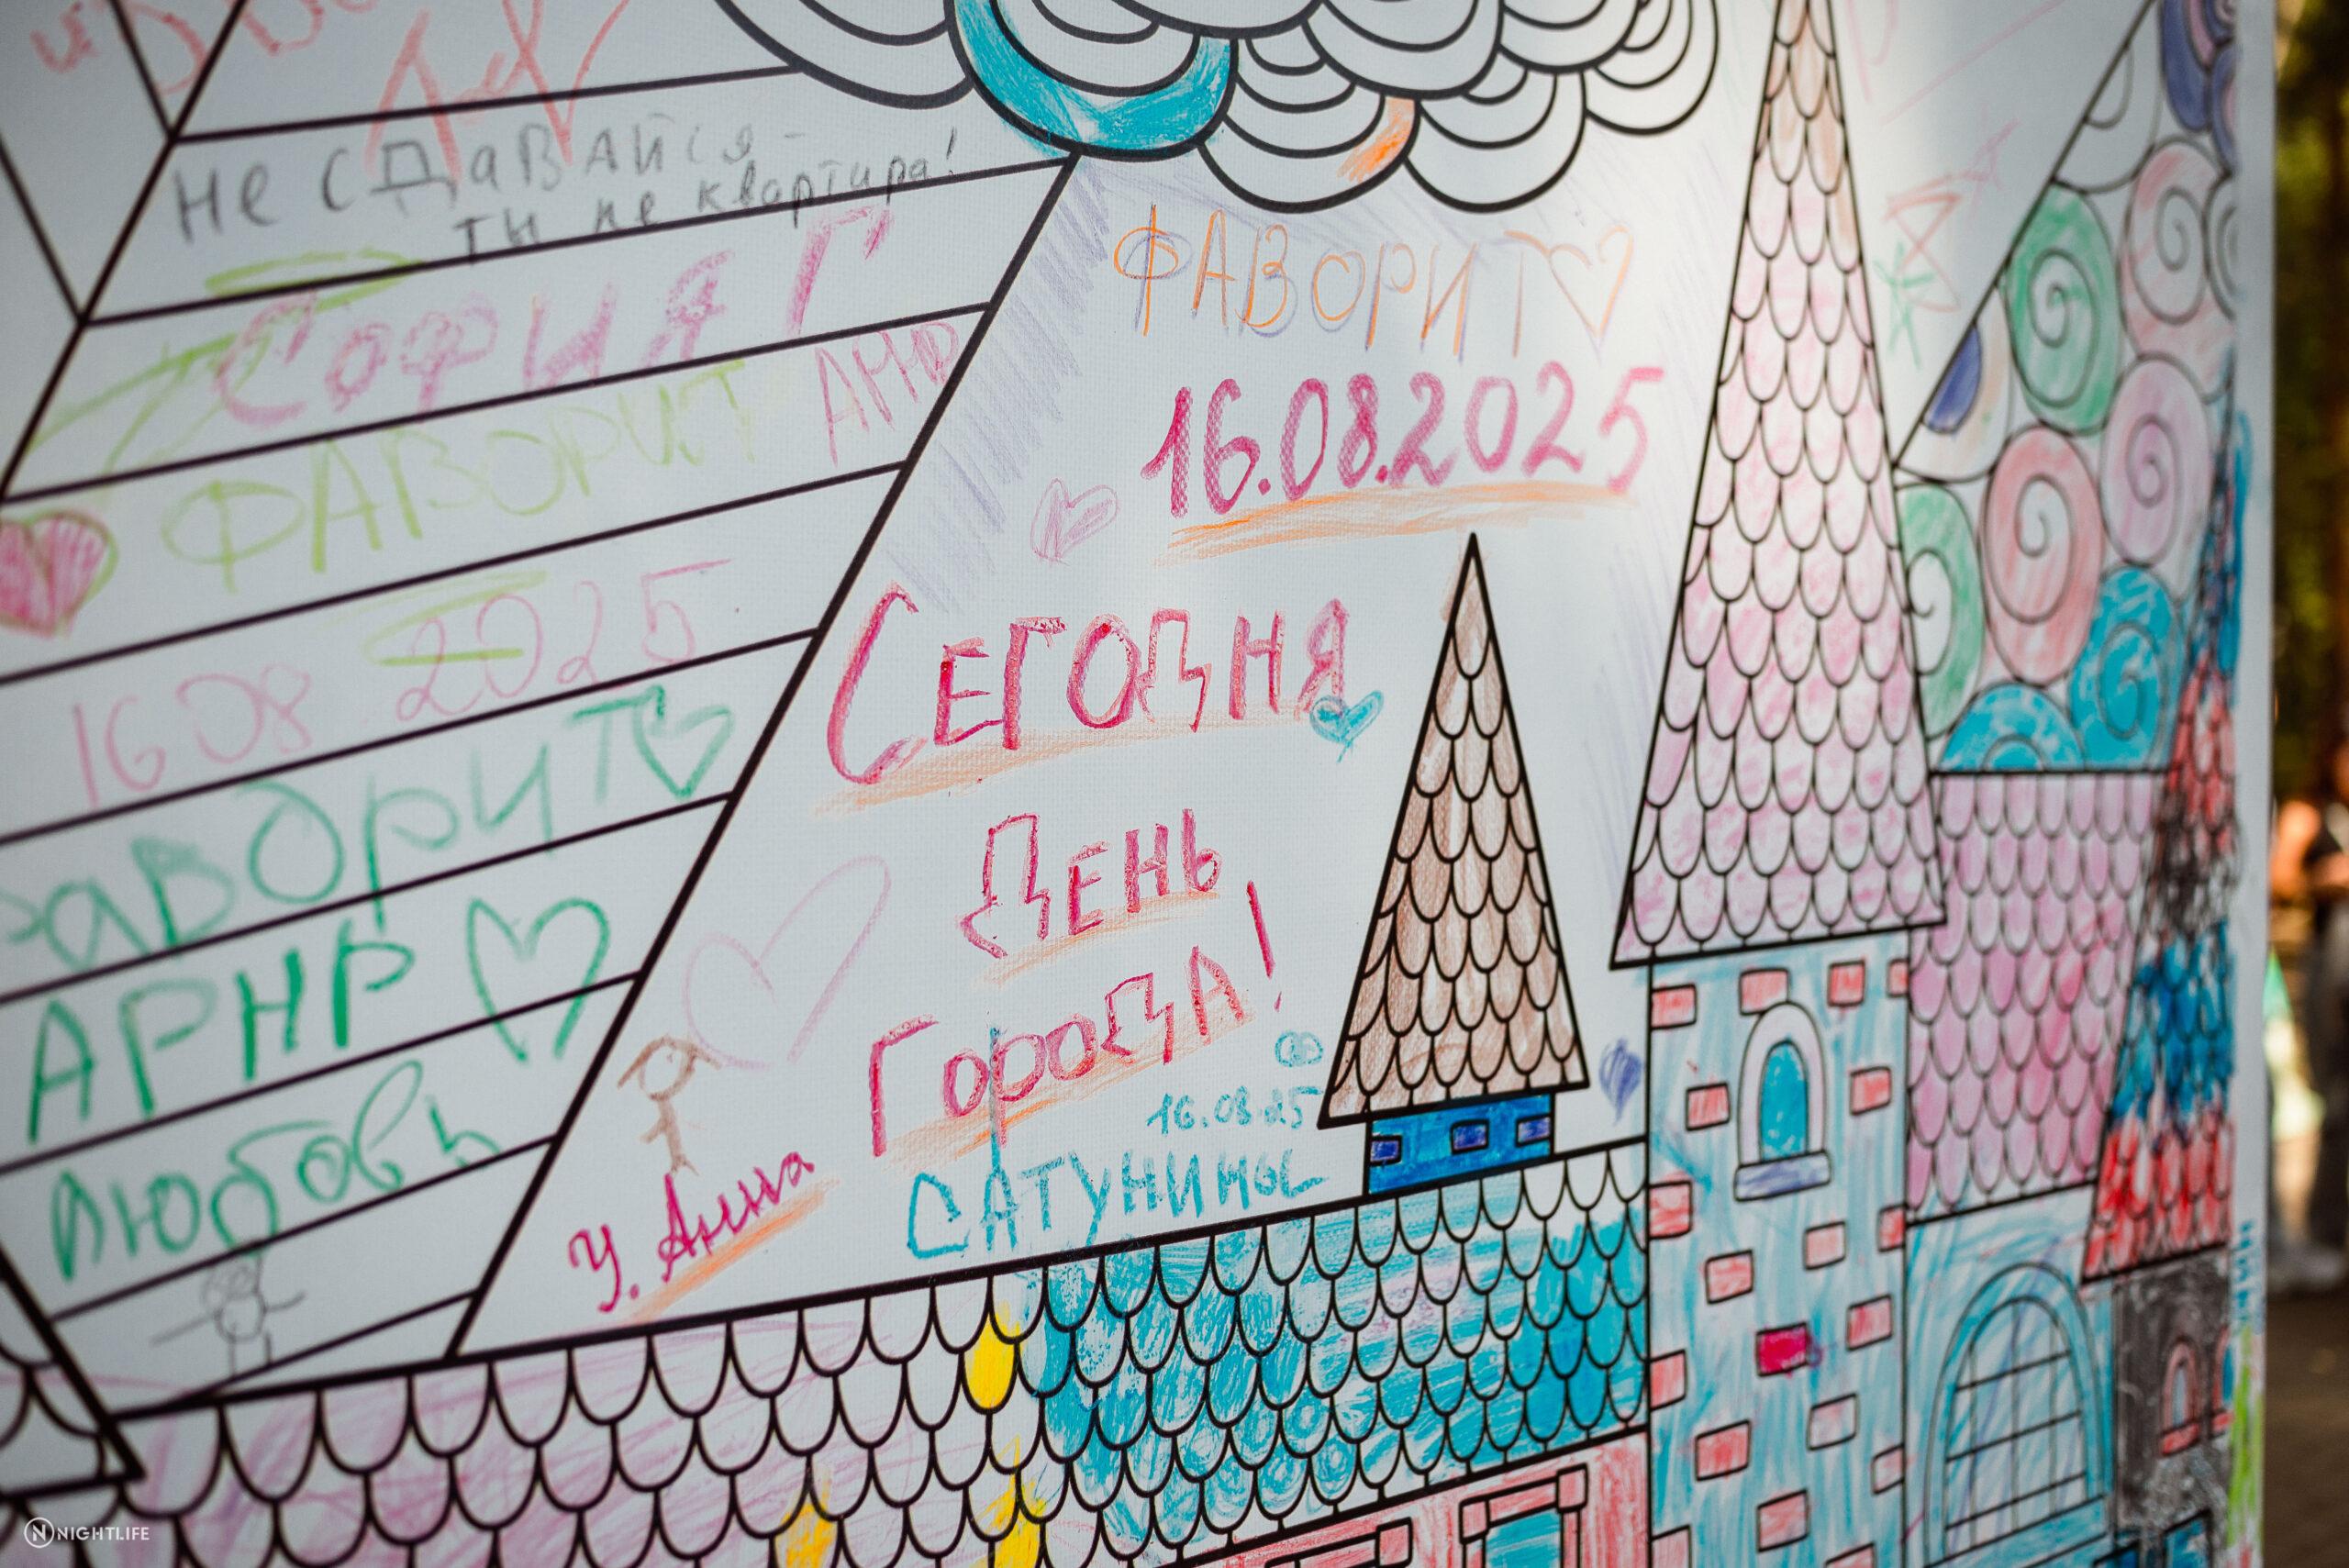 Не сдавайся -
ты не квартира!
София Г
ФАВОРИТ
16 08 2025
ФАВОРИТ
АРНР
Любовь
ФАВОРИТ
16.08.2025
Сегодня
День
Города!
16.08.25
САТУНИНЫ
У. Анна
NIGHTLIFE